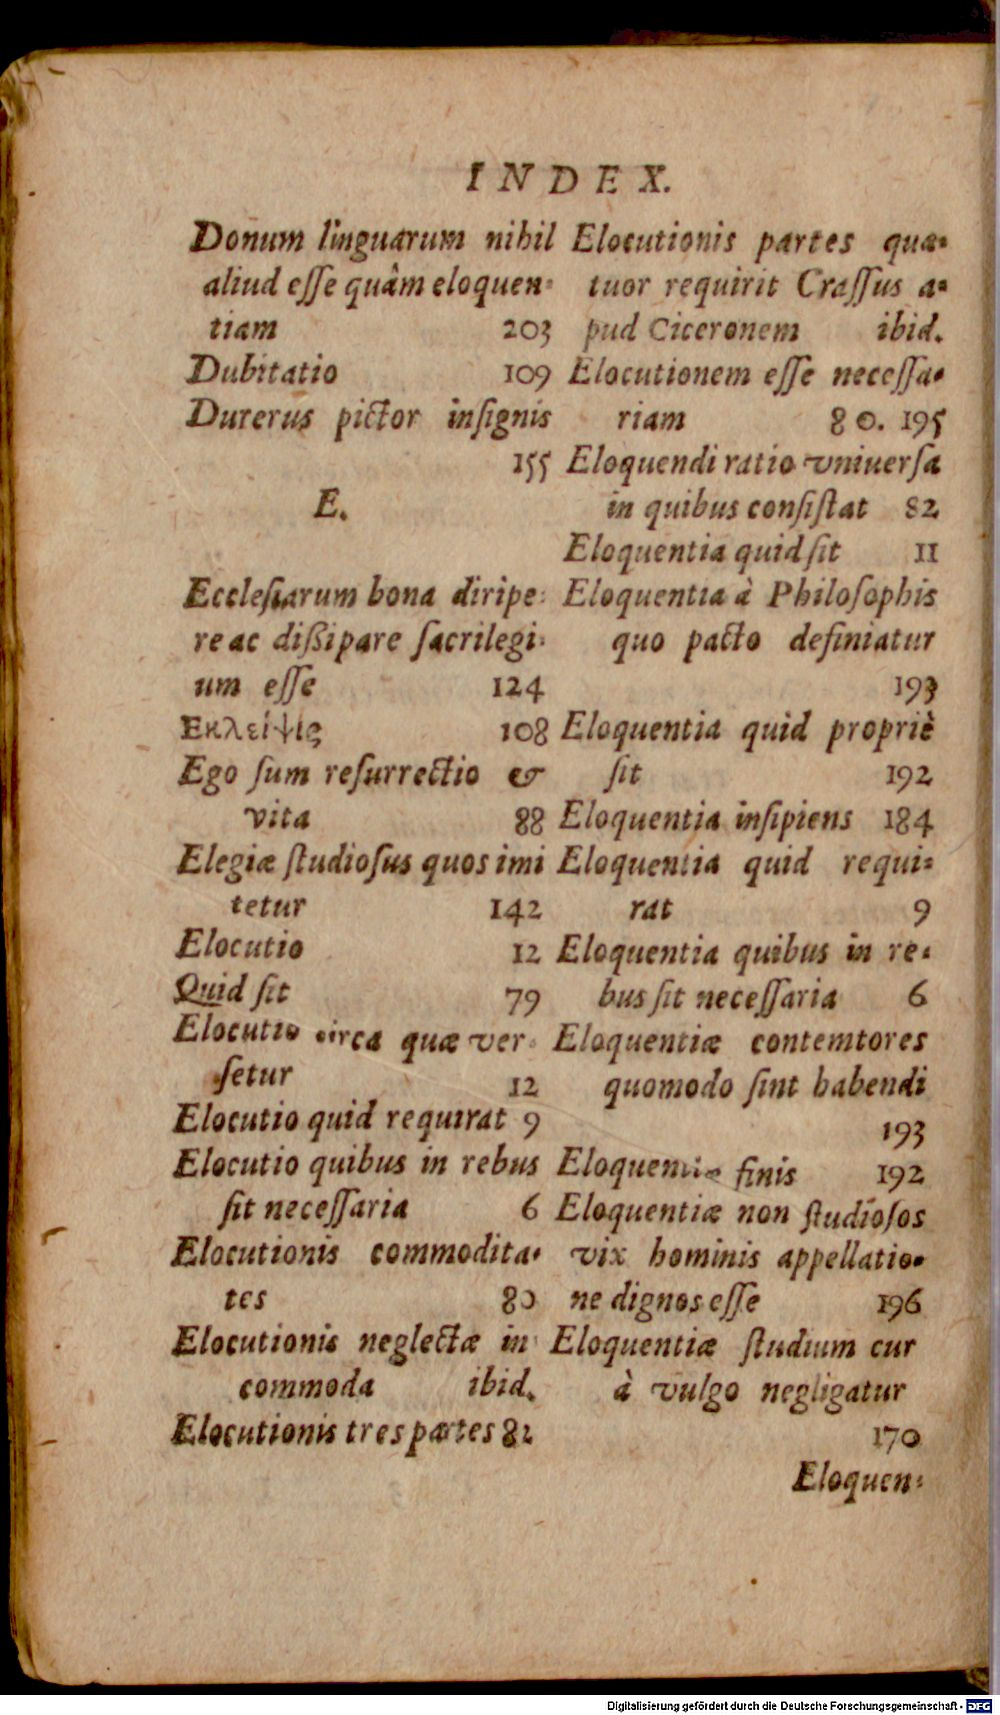 INDEX.
Donum linguarum nihil
aliud eſſe quâm eloquen-
tiam 203
Dubitatio 109
Durerus pictor inſignis
155
E.
Eccleſiarum bona diripe-
re ac dißipare ſacrilegi-
um eſſe 124
Εκλείψις 108
Ego ſum reſurrectio &
vita 88
Elegiæ ſtudioſus quos imi
tetur 142
Elocutio 12
Quid ſit 79
Elocutio circa quæ ver-
ſetur 12
Elocutio quid requirat 9
Elocutio quibus in rebus
ſit neceſſaria 6
Elocutionis commodita-
tes 80
Elocutionis neglectæ in-
commoda ibid.
Elocutionis tres partes 82
Elocutionis partes qua-
tuor requirit Craſſus a-
pud Ciceronem ibid.
Elocutionem eſſe neceſſa-
riam 80. 195
Eloquendi ratio vniuerſa
in quibus conſiſtat 82
Eloquentia quid ſit 11
Eloquentia à Philoſophis
quo pacto definiatur
193
Eloquentia quid propriè
ſit 192
Eloquentia inſipiens 184
Eloquentia quid requi-
rat 9
Eloquentia quibus in re-
bus ſit neceſſaria 6
Eloquentiæ contemtores
quomodo ſint habendi
193
Eloquentiæ finis 192
Eloquentiæ non ſtudioſos
vix hominis appellatio-
ne dignos eſſe 196
Eloquentiæ ſtudium cur
à vulgo negligatur
170
Eloquen-
Digitalisierung gefördert durch die Deutsche Forschungsgemeinschaft - DFG